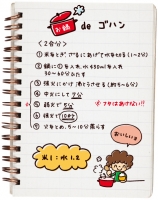 お鍋 de ゴハン
<2合分>
① 米をとぎ、ざるにあげて水を切る(1〜2分)
② 鍋に①を入れ、水450mlを入れ
30〜60分ひたす
③ 強火にかけ 沸とうさせる(約5〜6分)
④ 中火にして3分
⑤ 弱火で5分
フタはあけない!!
⑥ 弱火で10分
⑦ 火をとめ、5〜10分蒸らす
おいしい♪
米1:水1.2